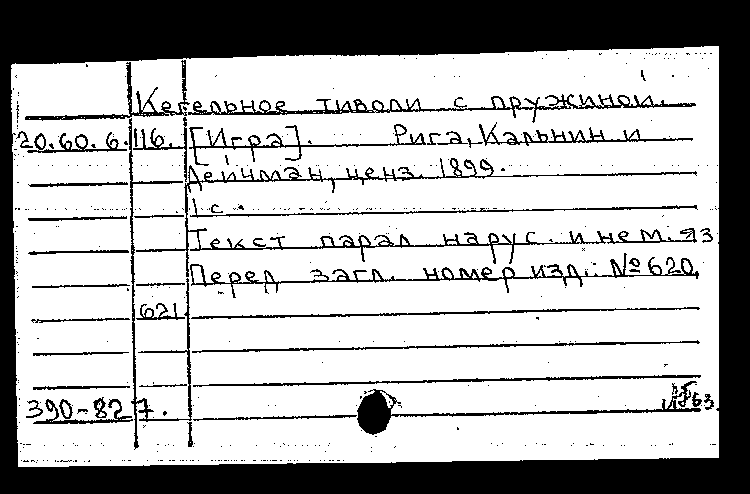 Кегельное тиволи с пружиной.
20.60.6.116. [Игра]. Рига, Кальнин и
Дейчман, ценз. 1899.
1 с.
Текст парал на рус. и нем. яз
Перед загл. номер изд.: №620,
621.
390-827.